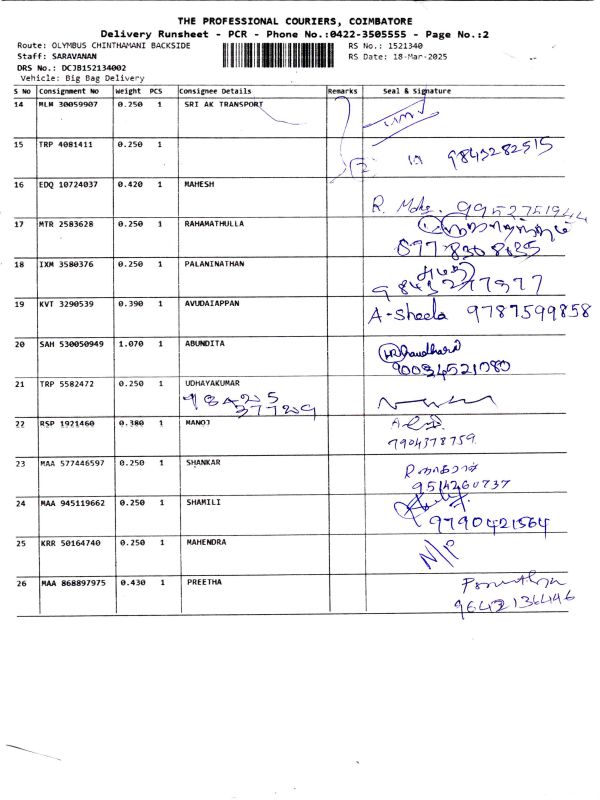 THE PROFESSIONAL COURIERS, COIMBATORE
Delivery Runsheet - PCR - Phone No.:0422-3505555 - Page No.:2
Route: OLYMBUS CHINTHAMANI BACKSIDE RS No.: 1521340
Staff: SARAVANAN RS Date: 18-Mar-2025
DRS No.: DCJB152134002
Vehicle: Big Bag Delivery
S No Consignment No Weight PCS Consignee Details Remarks Seal & Signature
14 MLM 30059907 0.250 1 SRI AK TRANSPORT
15 TRP 4081411 0.250 1 9843282515
16 EDQ 10724037 0.420 1 MAHESH
R. 9952751944
17 MTR 2583628 0.250 1 RAHAMATHULLA
18 IXM 3580376 0.250 1 PALANINATHAN
19 KVT 3290539 0.390 1 AVUDAIAPPAN A-Sheela 9787599858
20 SAH 530050949 1.070 1 ABUNDITA
21 TRP 5582472 0.250 1 UDHAYAKUMAR
98425
37729
22 RSP 1921460 0.380 1 MANOJ
7904378759
23 MAA 577446597 0.250 1 SHANKAR
9514260737
24 MAA 945119662 0.250 1 SHAMILI
9790421564
25 KRR 50164740 0.250 1 MAHENDRA N/P
26 MAA 868897975 0.430 1 PREETHA